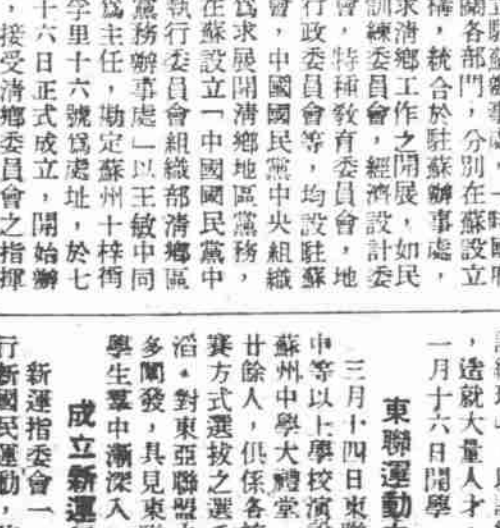 關各部門，分別在蘇設立
構，統合於駐蘇辦事處，
求清鄉工作之開展，如民
訓練委員會，經濟設計委
會，特種敎育委員會，地
行政委員會等，均設駐蘇
會，中國國民黨中央組織
爲求展開清鄉地區黨務，
在蘇設立「中國國民黨中
執行委員會組織部清鄉區
黨務辦事處」以王敏中同
爲主任，勘定蘇州十梓街
學里十六號爲處址，於七
十六日正式成立，開始辦
，接受清鄉委員會之指揮
，造就大量人才
一月十六日開學
東聯運動
三月十四日東
中等以上學校演
蘇州中學大禮堂
廿餘人，俱係各
賽方式選拔之選
滔，對東亞聯盟
多闡發，具見東
學生羣中漸深入
成立新運
新運指委會一
行新國民運動，